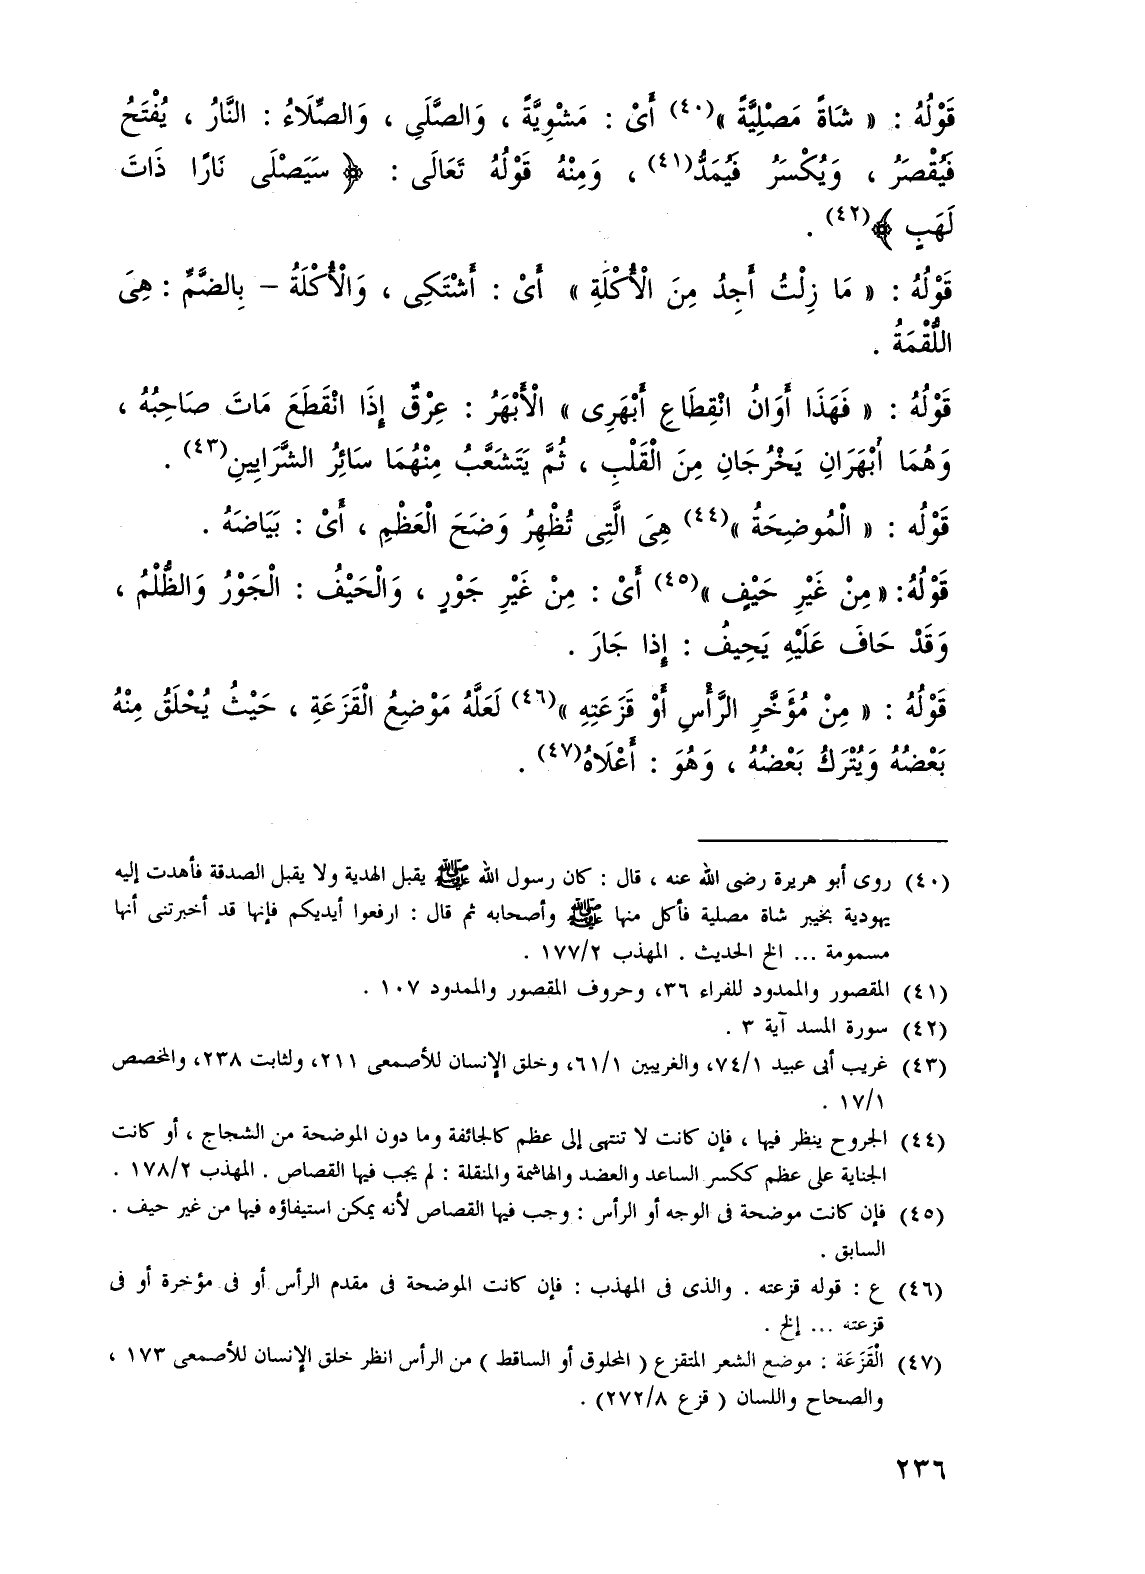 قَوْلُهُ : « شَاةً مَصْلِيَّةً »(٤٠) أَىْ : مَشْوِيَّةً ، وَالصَّلَى ، وَالصِّلَاءُ : النَّارُ ، يُفْتَحُ
فَيُقْصَرُ ، وَيُكْسَرُ فَيُمَدُّ(٤١) ، وَمِنْهُ قَوْلُهُ تَعَالَى : ﴿ سَيَصْلَى نَارًا ذَاتَ
لَهَبٍ ﴾(٤٢) .
قَوْلُهُ : « مَا زِلْتُ أَجِدُ مِنَ الْأُكْلَةِ » أَىْ : أَشْتَكِى ، وَالْأُكْلَةُ – بِالضَّمِّ : هِىَ
اللُّقْمَةُ .
قَوْلُهُ : « فَهَذَا أَوَانُ انْقِطَاعِ أَبْهَرِى » الْأَبْهَرُ : عِرْقٌ إِذَا انْقَطَعَ مَاتَ صَاحِبُهُ ،
وَهُمَا أَبْهَرَانِ يَخْرُجَانِ مِنَ الْقَلْبِ ، ثُمَّ يَتَشَعَّبُ مِنْهُمَا سَائِرُ الشَّرَايِينِ(٤٣) .
قَوْلُه : « الْمُوضِحَةُ »(٤٤) هِىَ الَّتِى تُظْهِرُ وَضَحَ الْعَظْمِ ، أَىْ : بَيَاضَهُ .
قَوْلُهُ: « مِنْ غَيْرِ حَيْفٍ »(٤٥) أَىْ : مِنْ غَيْرِ جَوْرٍ ، وَالْحَيْفُ : الْجَوْرُ وَالظُّلْمُ ،
وَقَدْ حَافَ عَلَيْهِ يَحِيفُ : إِذا جَارَ .
قَوْلُهُ : « مِنْ مُؤَخَّرِ الرَّأْسِ أَوْ قَزَعَتِهِ »(٤٦) لَعَلَّهُ مَوْضِعُ الْقَزَعَةِ ، حَيْثُ يُحْلَقُ مِنْهُ
بَعْضُهُ وَيُتْرَكُ بَعْضُهُ ، وَهُوَ : أَعْلَاهُ(٤٧) .
(٤٠) روى أبو هريرة رضى الله عنه ، قال : كان رسول الله ﷺ يقبل الهدية ولا يقبل الصدقة فأهدت إليه
يهودية بخيبر شاة مصلية فأكل منها ﷺ وأصحابه ثم قال : ارفعوا أيديكم فإنها قد أخبرتنى أنها
مسمومة ... الخ الحديث . المهذب ١٧٧/٢ .
(٤١) المقصور والممدود للفراء ٣٦، وحروف المقصور والممدود ١٠٧ .
(٤٢) سورة المسد آية ٣ .
(٤٣) غريب أبى عبيد ٧٤/١، والغريبين ٦١/١، وخلق الإنسان للأصمعى ٢١١، ولثابت ٢٣٨، والمخصص
١٧/١ .
(٤٤) الجروح ينظر فيها ، فإن كانت لا تنتهى إلى عظم كالجائفة وما دون الموضحة من الشجاج ، أو كانت
الجناية على عظم ككسر الساعد والعضد والهاشمة والمنقلة : لم يجب فيها القصاص . المهذب ١٧٨/٢ .
(٤٥) فإن كانت موضحة فى الوجه أو الرأس : وجب فيها القصاص لأنه يمكن استيفاؤه فيها من غير حيف .
السابق .
(٤٦) ع : قوله قزعته . والذى فى المهذب : فإن كانت الموضحة فى مقدم الرأس أو فى مؤخرة أو فى
قزعته ... إلخ .
(٤٧) الْقَزَعَة : موضع الشعر المتقزع ( المحلوق أو الساقط ) من الرأس انظر خلق الإنسان للأصمعى ١٧٣ ،
والصحاح واللسان ( قزع ٢٧٢/٨) .
٢٣٦